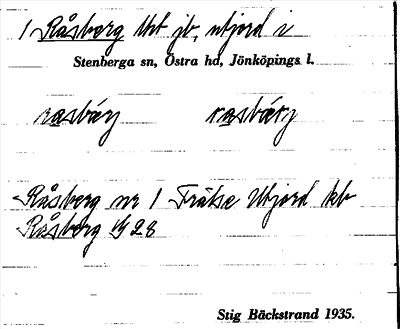 1 Råsberg Utjb, utjord i
Stenberga sn, Östra hd, Jönköpings l.
rasbärj rasbärj
Råsberg nr 1 Frälse Utjord
Råsberg 28
Stig Bäckstrand 1935.